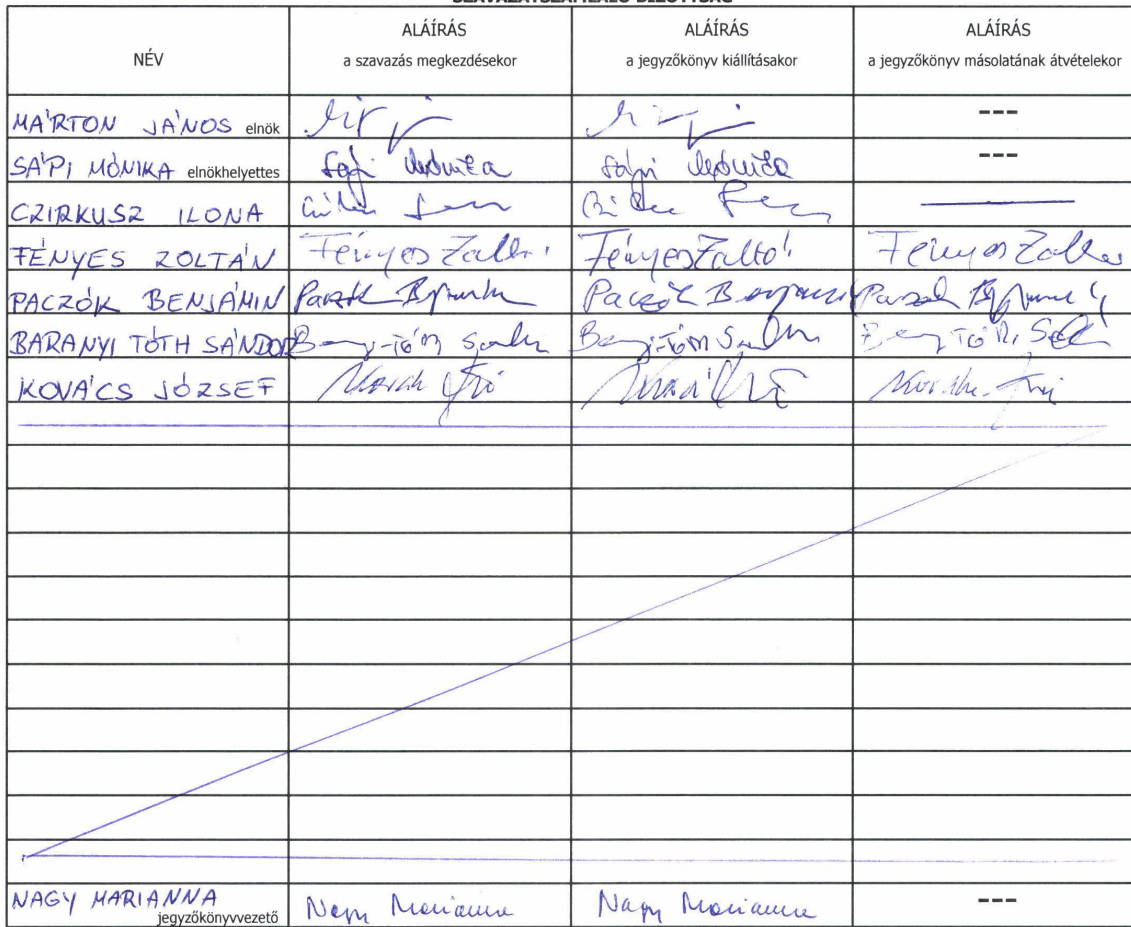 SZAVAZATSZÁMLÁLÓ BIZOTTSÁG
NÉV
ALÁÍRÁS
a szavazás megkezdésekor
ALÁÍRÁS
a jegyzőkönyv kiállításakor
ALÁÍRÁS
a jegyzőkönyv másolatának átvételekor
MÁRTON JÁNOS elnök ---
SÁPI MÓNIKA elnökhelyettes Sápi Mónika Sápi Mónika ---
CZIRKUSZ ILONA
FÉNYES ZOLTÁN Fényes Zoltán Fényes Zoltán Fényes Zoltán
PACZÓK BENJÁMIN Paczók Benjámin Paczók Benjámin Paczók Benjámin
BARANYI TÓTH SÁNDOR
KOVÁCS JÓZSEF
NAGY MARIANNA
jegyzőkönyvvezető Nagy Marianna Nagy Marianna ---